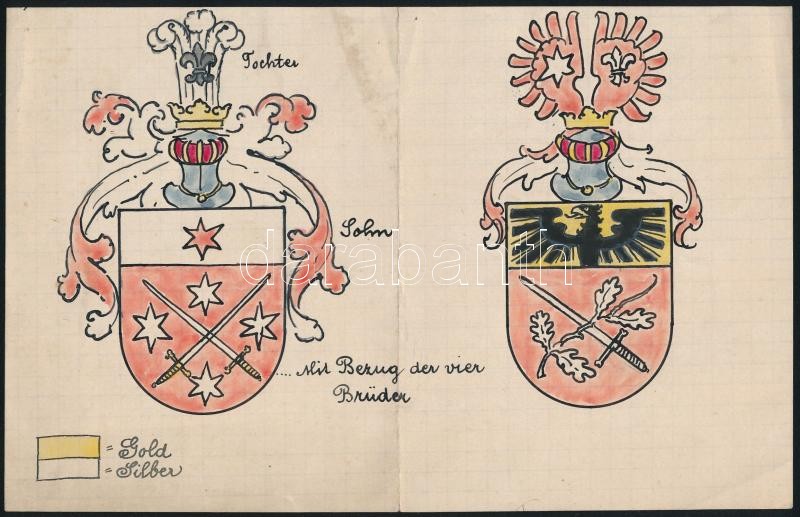 Tochter
Sohn
darabanth.com
.... Mit Bezug der vier
Brüder
= Gold
= Silber